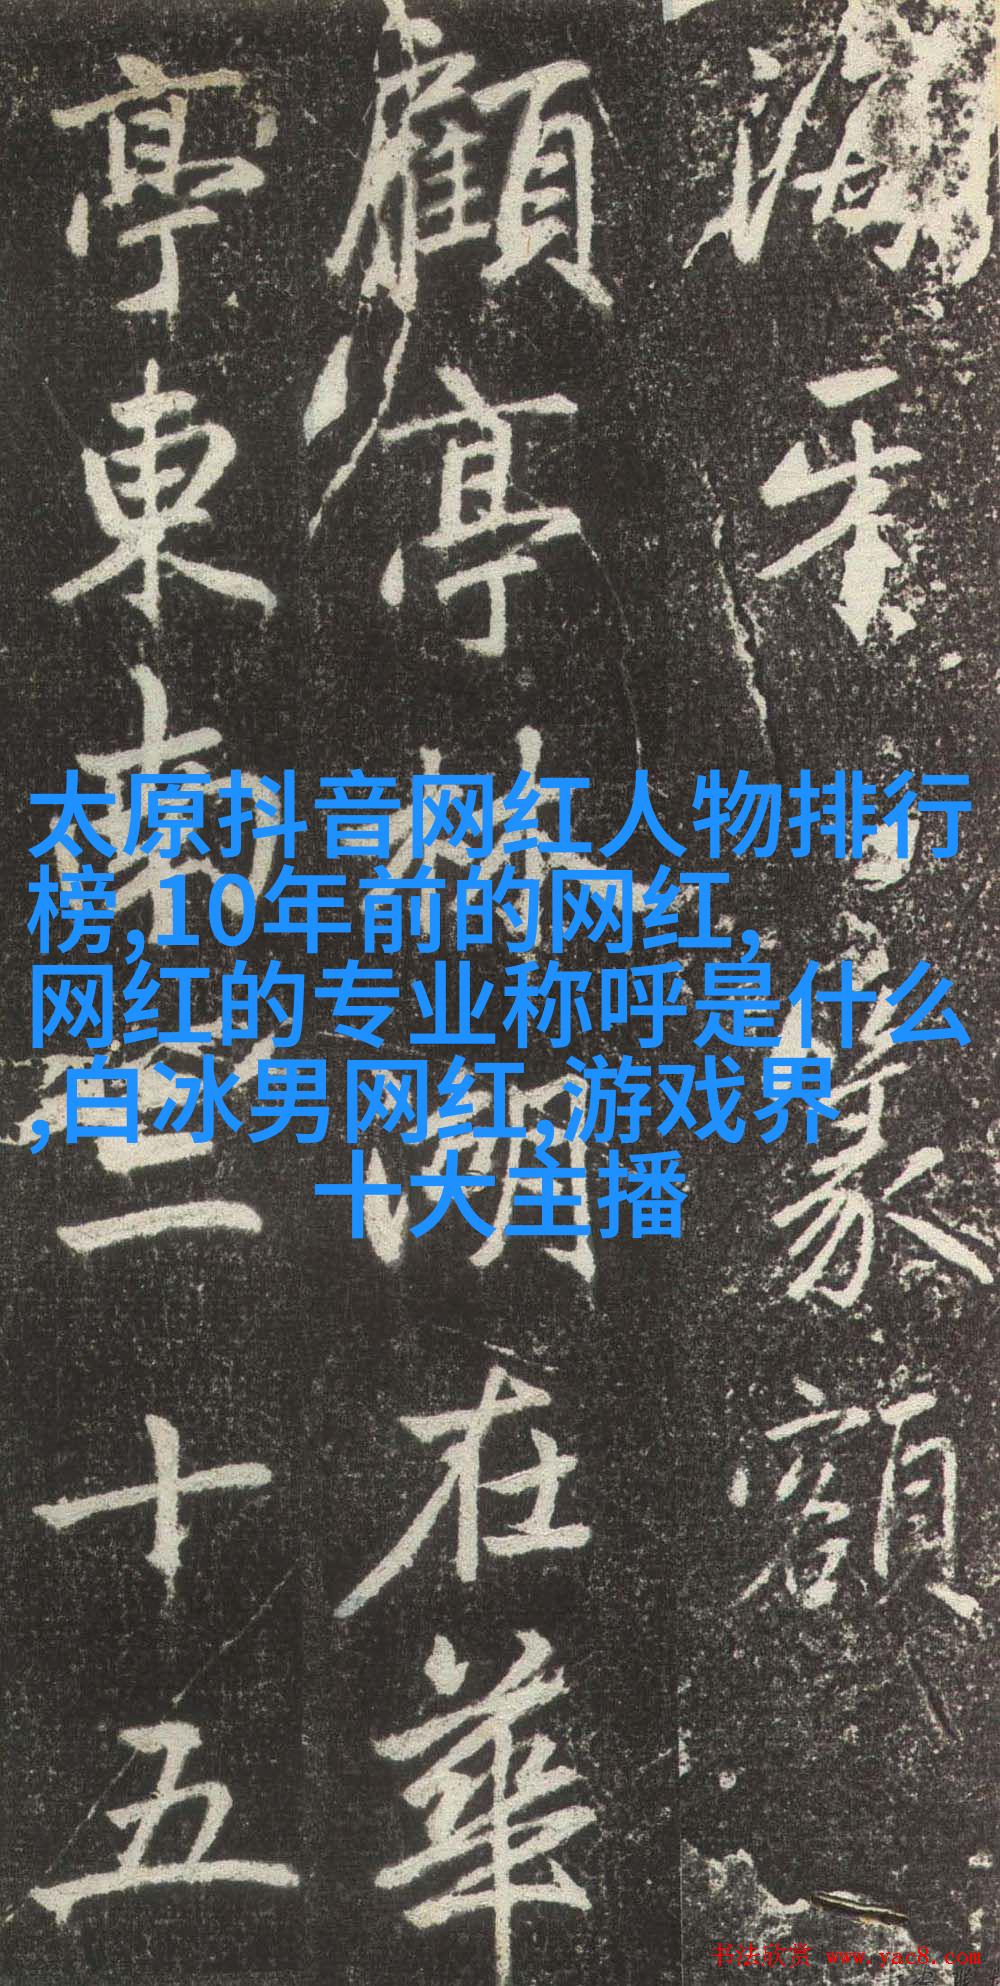 篆額
顧亭林湖在華
亭東南三十五
太原抖音网红人物排行
榜,10年前的网红,
网红的专业称呼是什么
,白冰男网红,游戏界
十大主播
书法欣赏 www.yac8.com